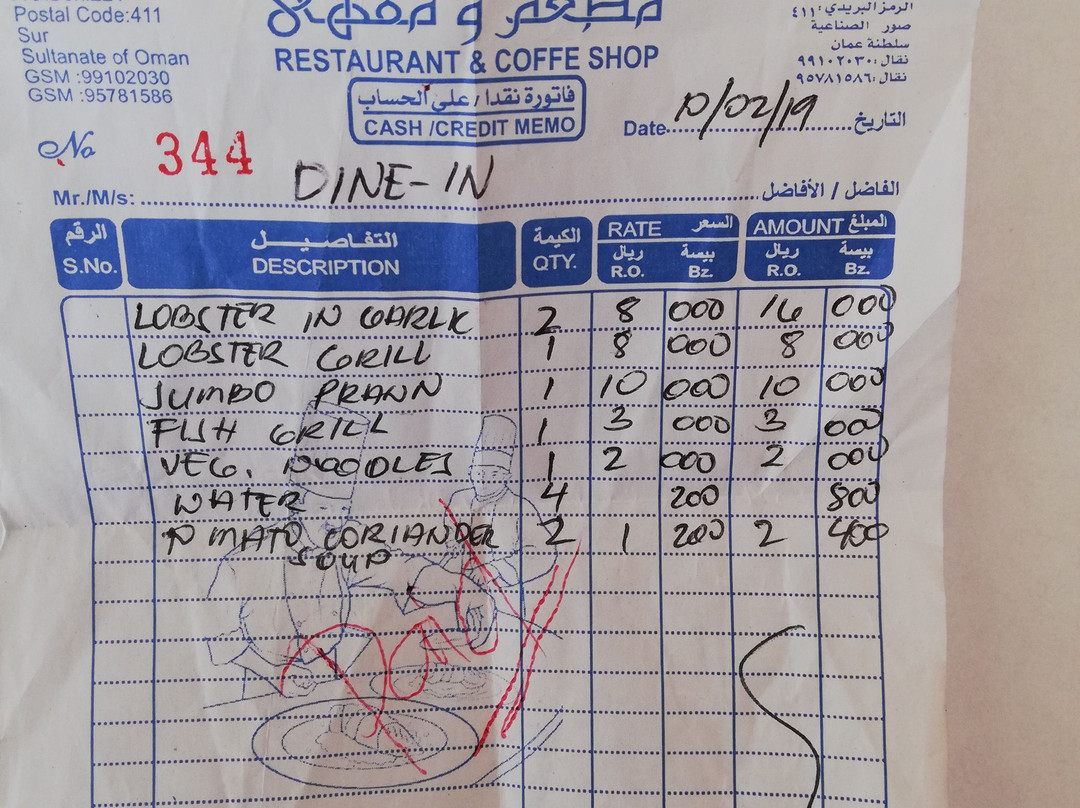 Postal Code:411
Sur
Sultanate of Oman
GSM :99102030
GSM :95781586
مطعم و مقهى
RESTAURANT & COFFE SHOP
الرمز البريدي: ٤١١
صور الصناعية
سلطنة عمان
نقال: ٩٩١٠٢٠٣٠
نقال: ٩٥٧٨١٥٨٦
فاتورة نقدا / على الحساب
CASH /CREDIT MEMO
No 344
Date 10/02/19 التاريخ
Mr./M/s: DINE-IN الفاضل / الأفاضل
الرقم التفاصيل الكيمة RATE السعر AMOUNT المبلغ
S.No. DESCRIPTION QTY. ريال R.O. بيسة Bz. ريال R.O. بيسة Bz.
LOBSTER IN GARLIC 2 8 000 16 000
LOBSTER GRILL 1 8 000 8 000
JUMBO PRAWN 1 10 000 10 000
FISH GRILL 1 3 000 3 000
VEG. NOODLES 1 2 000 2 000
WATER 4 200 800
TOMATO CORIANDER 2 1 200 2 400
SOUP